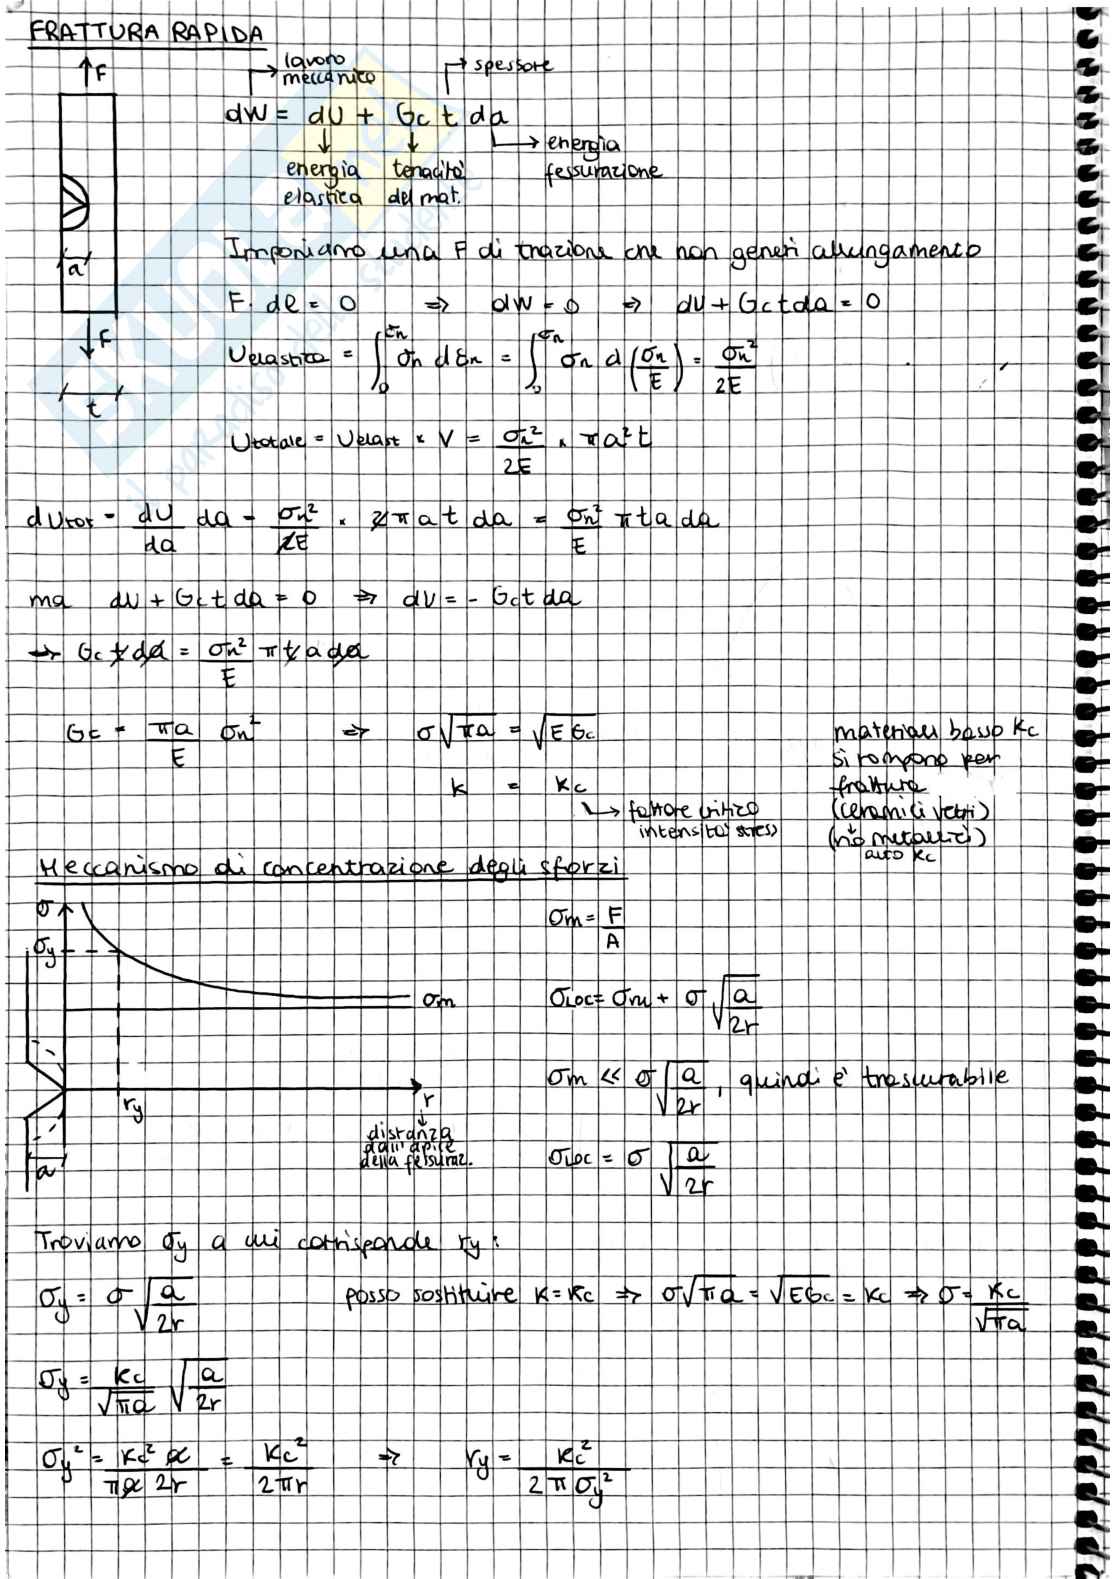 FRATTURA RAPIDA
F
lavoro meccanico
spessore
dW = dU + Gc t da
energia elastica
tenacità del mat.
energia fessurazione
a
F
t
Imponiamo una F di trazione che non generi allungamento
F · dl = 0 ⇒ dW = 0 ⇒ dU + Gc t da = 0
Uelastica = ∫₀^εn σn dεn = ∫₀^σn σn d(σn/E) = σn²/2E
Utotale = Uelast × V = σn²/2E · πa²t
dUtot = dU/da da = σn²/2E · 2πa t da = σn²/E π t a da
ma dU + Gc t da = 0 ⇒ dU = - Gc t da
⇒ Gc t da = σn²/E π t a da
Gc = πa/E σn² ⇒ σ√πa = √E Gc
K = Kc
fattore critico intensità stress
materiali basso Kc
si rompono per
frattura
(ceramici vetri)
(no metallici)
alto Kc
Meccanismo di concentrazione degli sforzi
σ
σy
σm
ry
r
distanza
dall'apice
della fessuraz.
a
σm = F/A
σLoc = σm + σ√a/2r
σm << σ√a/2r, quindi è trascurabile
σLoc = σ√a/2r
Troviamo σy a cui corrisponde ry:
σy = σ√a/2r posso sostituire K = Kc ⇒ σ√πa = √EGc = Kc ⇒ σ = Kc/√πa
σy = Kc/√πa √a/2r
σy² = Kc² a/πa 2r = Kc²/2πr ⇒ ry = Kc²/2πσy²